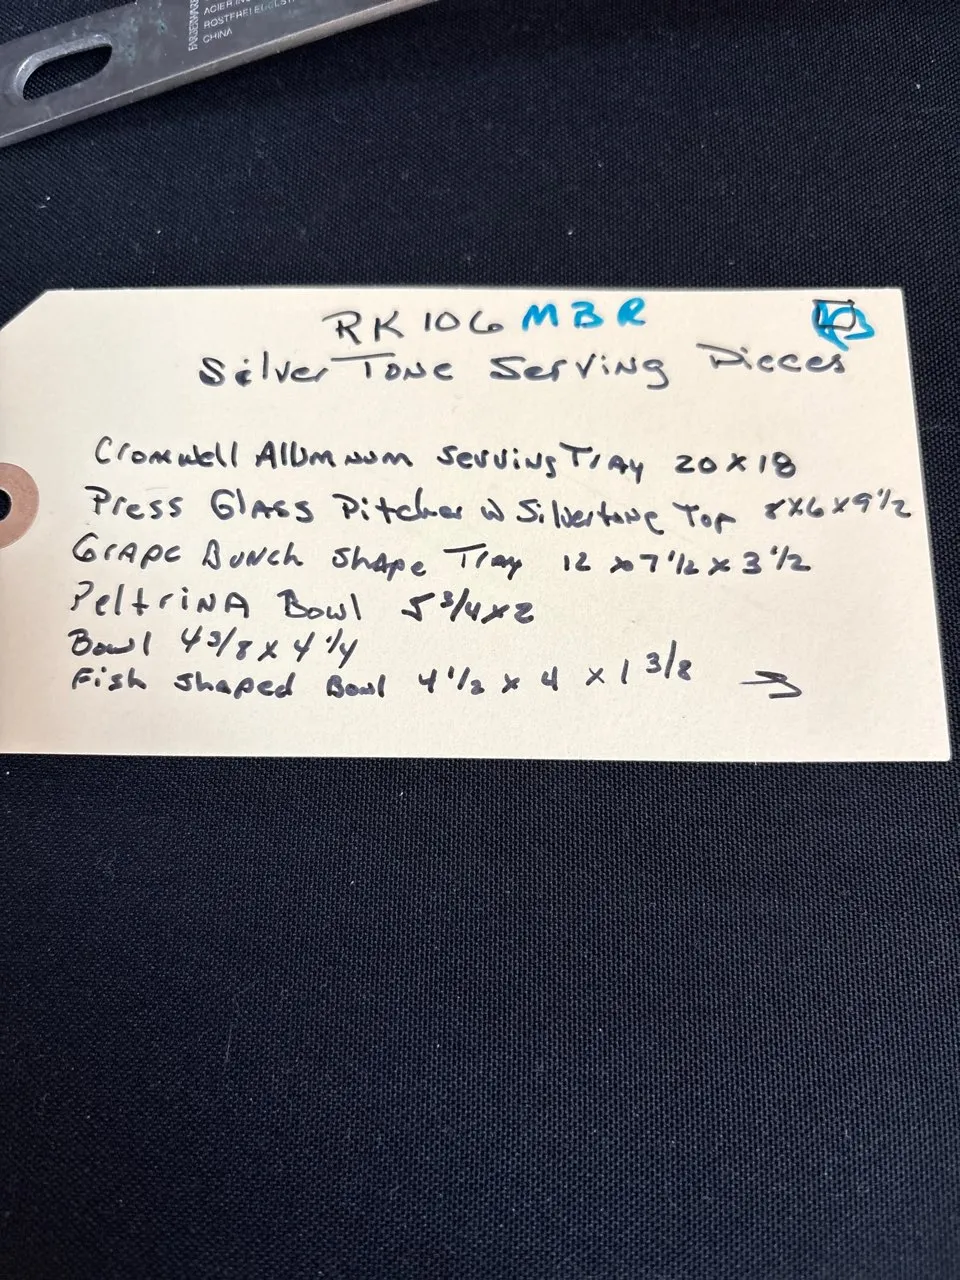 ACIER IN
ROSTFREI EDELST
CHINA
FARBERWARE
RK106 MBR
Silver Tone Serving Pieces
Cromwell Allumnum Serving Tray 20 x 18
Press Glass Pitcher w Silvertone Top 8x6x9 1/2
Grape Bunch Shape Tray 12 x 7 1/2 x 3 1/2
Peltrina Bowl 5 3/4 x 2
Bowl 4 3/8 x 4 1/4
Fish shaped Bowl 4 1/2 x 4 x 1 3/8 →